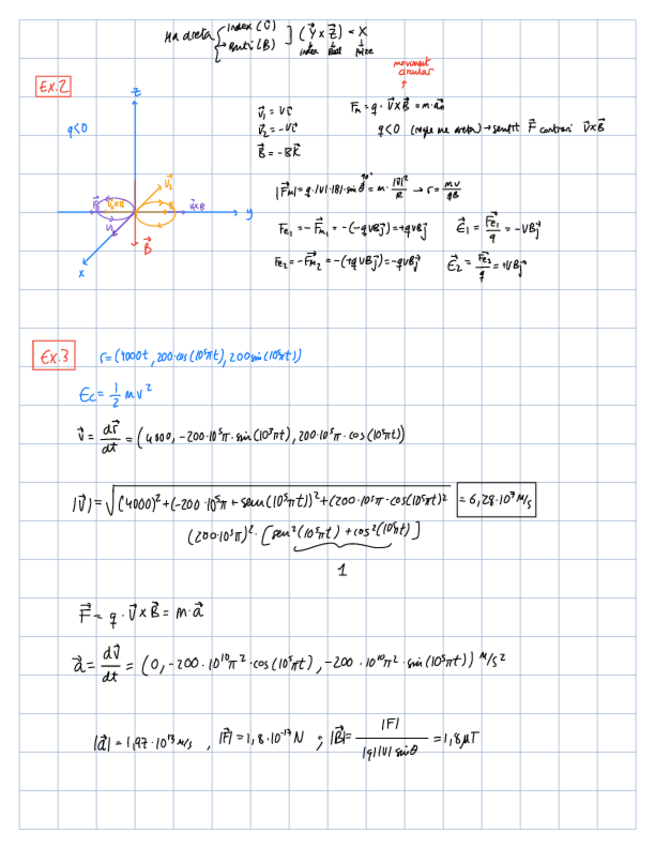 Ma dreta { Index (C)
Banti (B) ] (Y⃗ x Z⃗) = X
index
moviment
circular
Ex.2
z
q<0
v⃗₁ = vi⃗
F⃗m = q · v⃗xB⃗ = m·a⃗n
v⃗₂ = -vi⃗
q<0 (regla ma dreta) → sentit F⃗ contrari v⃗xB⃗
B⃗ = -Bk⃗
|F⃗m| = q·|v|·|B|·sin θ = m· |v⃗|²/R → r = mv/qB
90°
V⃗₂
y
B⃗
x
Fe₁ = -F⃗m₁ = -(-qvBj⃗) = +qvBj⃗
E⃗₁ = F⃗e₁/q = -vBj⃗
Fe₂ = -F⃗m₂ = -(+qvBj⃗) = -qvBj⃗
E⃗₂ = F⃗e₂/q = +vBj⃗
Ex.3
r = (4000t, 200·cos(10⁵πt), 200sin(10⁵πt))
Ec = 1/2 mv²
v⃗ = dr⃗/dt = (4000, -200·10⁵π·sin(10⁵πt), 200·10⁵π·cos(10⁵πt))
|v⃗| = √((4000)²+(-200·10⁵π + sem(10⁵πt))²+(200·10⁵π·cos(10⁵πt)² = 6,28·10⁷ m/s
(200·10⁵π)²·[sen²(10⁵πt) + cos²(10⁵πt)]
1
F⃗ = q·v⃗xB⃗ = m·a⃗
a⃗ = dv⃗/dt = (0, -200·10¹⁰π²·cos(10⁵πt), -200·10¹⁰π²·sin(10⁵πt)) m/s²
|a⃗| = 1,97·10¹³ m/s , |F⃗| = 1,8·10⁻¹⁷ N ; |B⃗| = |F|/|q||v| sinθ = 1,8 μT